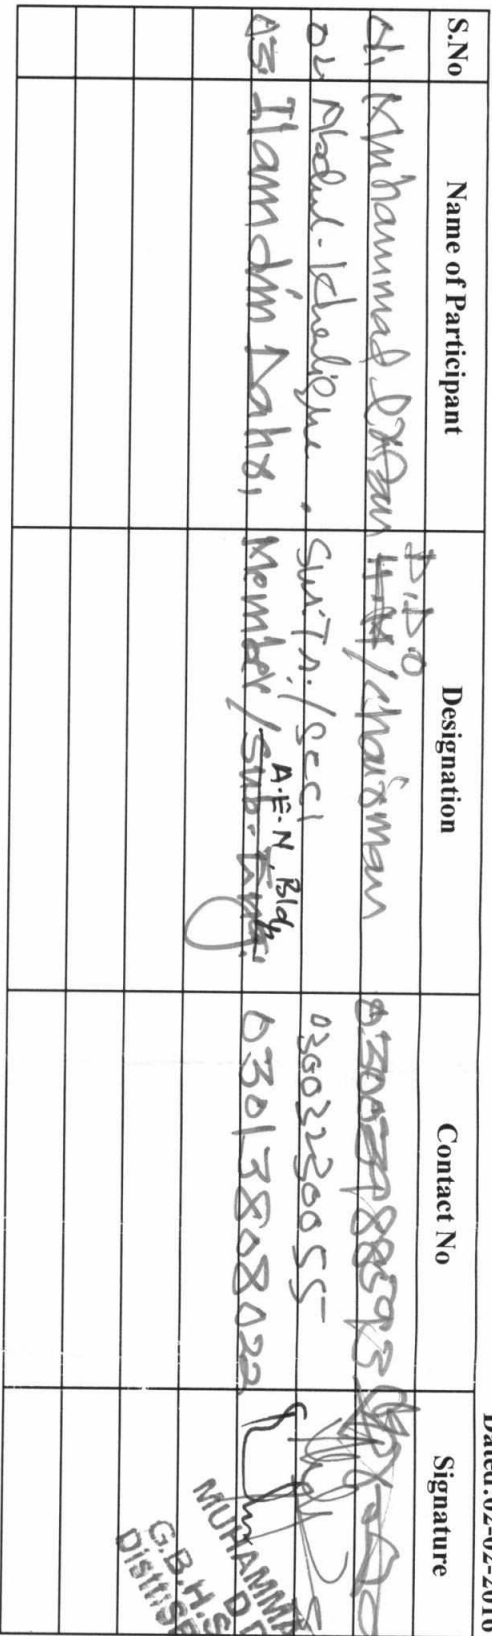 Dated:02-02-2016
S.No Name of Participant Designation Contact No Signature
01, Muhammad D.D.O H.M/chairman
02 Abdul-Khalique. Sur.Tr./Secl 03003230055
03, Ilamdin Dahr, Member/Sub-Eng: A.E.N Bldg 03013808022
MUHAMMA
D.D
G.B.H.S
Disttt